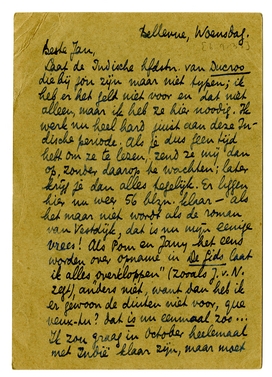 Bellevue, Woensdag.
Beste Jan,
Laat de Indische hfdstn. van Ducroo
die bij jou zijn maar niet typen; ik
heb er het geld niet voor en dat niet
alleen, maar ik heb ze hier noodig. Ik
werk nu heel hard juist aan deze In-
dische periode. Als je dus geen tijd
hebt om ze te lezen, zend ze mij dan
op, zonder daarop te wachten; later
krijg je dan alles tegelijk. Er liggen
hier nu weer 56 blzn. klaar — als
het maar niet wordt als de roman
van Vestdijk, dat is nu mijn eenige
vrees! Als Pom en Jany het eens
worden over opname in De Gids laat
ik alles overkloppen" (zooals J. v. N.
zegt) anders niet, want dan heb ik
er gewoon de duiten niet voor, que
veux-tu? dat is nu eenmaal zoo...
Ik zou graag in October heelemaal
met Indië klaar zijn, maar moet